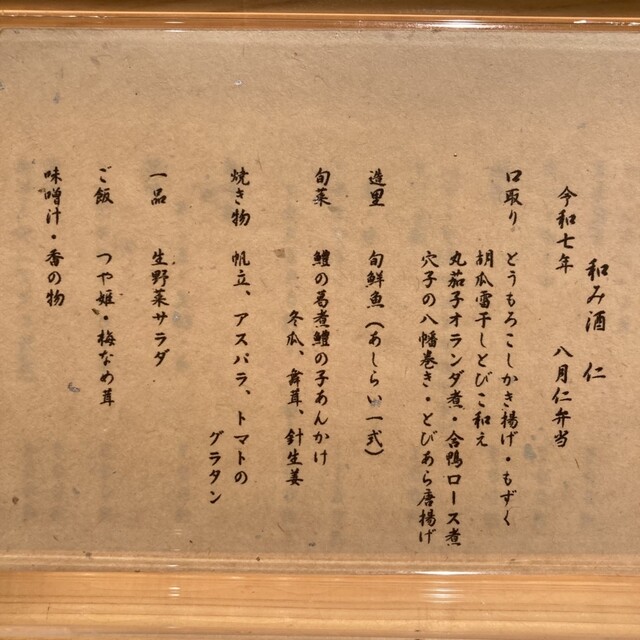 和み酒 仁
令和七年 八月仁弁当
口取り とうもろこしかき揚げ・もずく
胡瓜雷干しとびこ和え
丸茄子オランダ煮・合鴨ロース煮
穴子の八幡巻き・とびあら唐揚げ
造里 旬鮮魚(あしらい一式)
旬菜 鱧の葛煮鱧の子あんかけ
冬瓜、舞茸、針生姜
焼き物 帆立、アスパラ、トマトの
グラタン
一品 生野菜サラダ
ご飯 つや姫・梅なめ茸
味噌汁・香の物